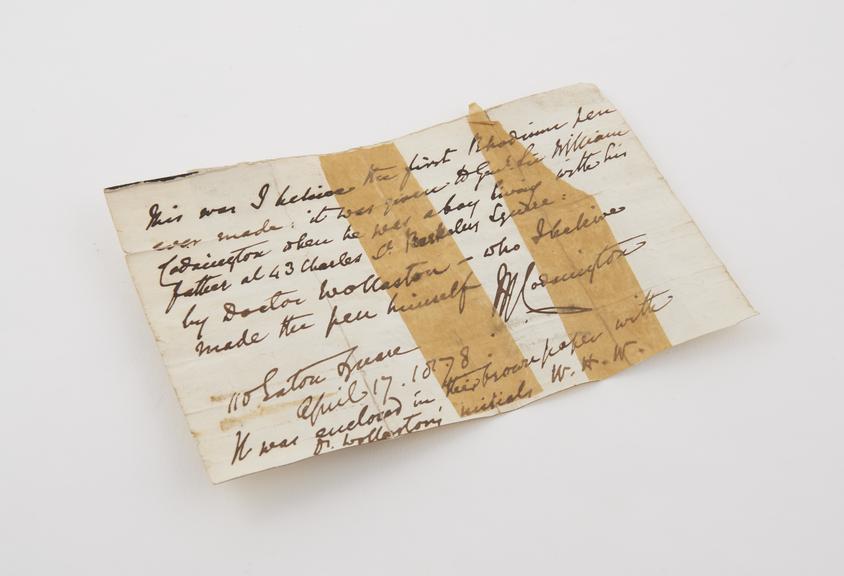 This was I believe the first Rhodium pen
ever made: it was given to Genl. Sir William
Codrington when he was a boy living with his
father at 43 Charles St. Berkeley Square:
by Doctor Wollaston – who I believe
made the pen himself WCodrington
110 Eaton Square
April 17. 1878.
It was enclosed in this brown paper with
Dr. Wollaston's initials W. H. W.